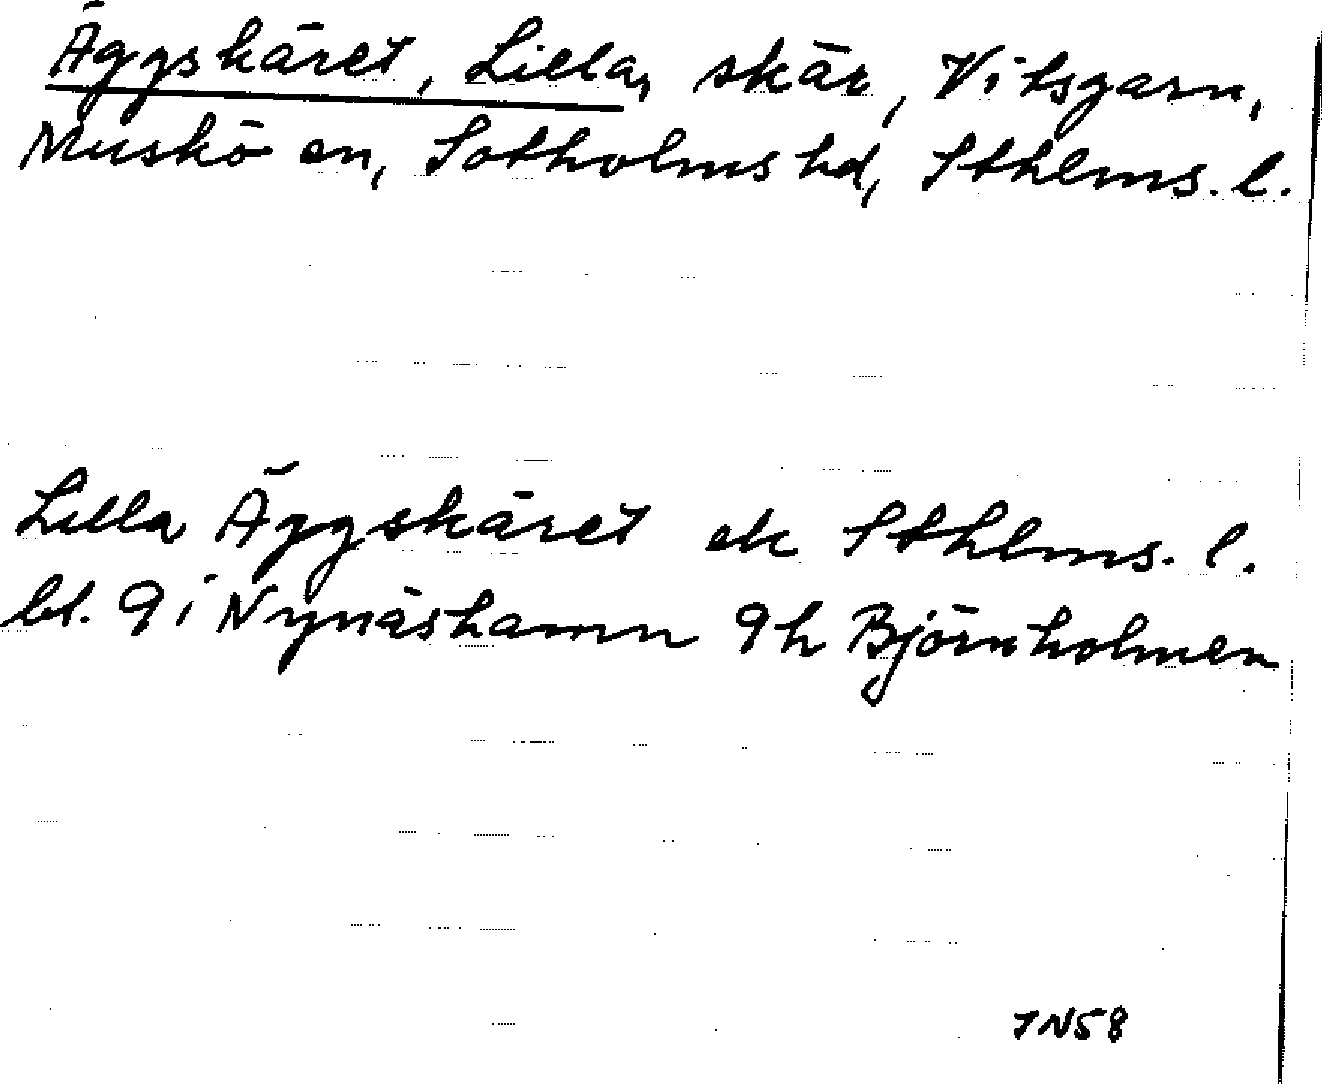 Äggskäret, Lilla, skär, Vitsgarn,
Muskö sn, Sotholms hd, Sthlms. l.
Lilla Äggskäret ek Sthlms. l.
bl. 9i Nynäshamn 9h Björnholmen
JN58